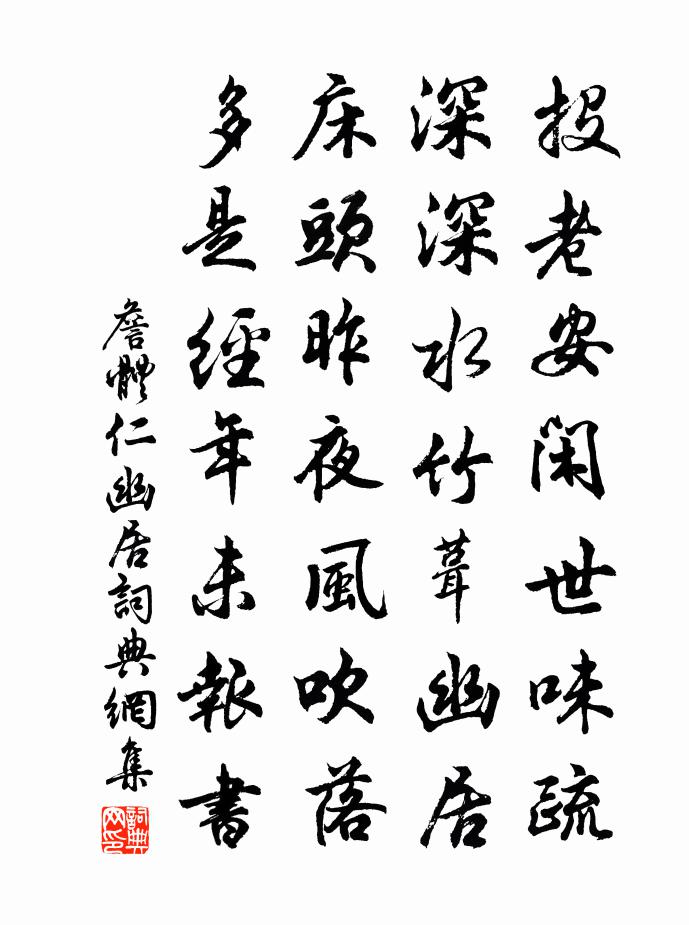 投老安閑世味疏
深深水竹葺幽居
床頭昨夜風吹落
多是經年未報書
詹體仁幽居詞典網集
詞典網印